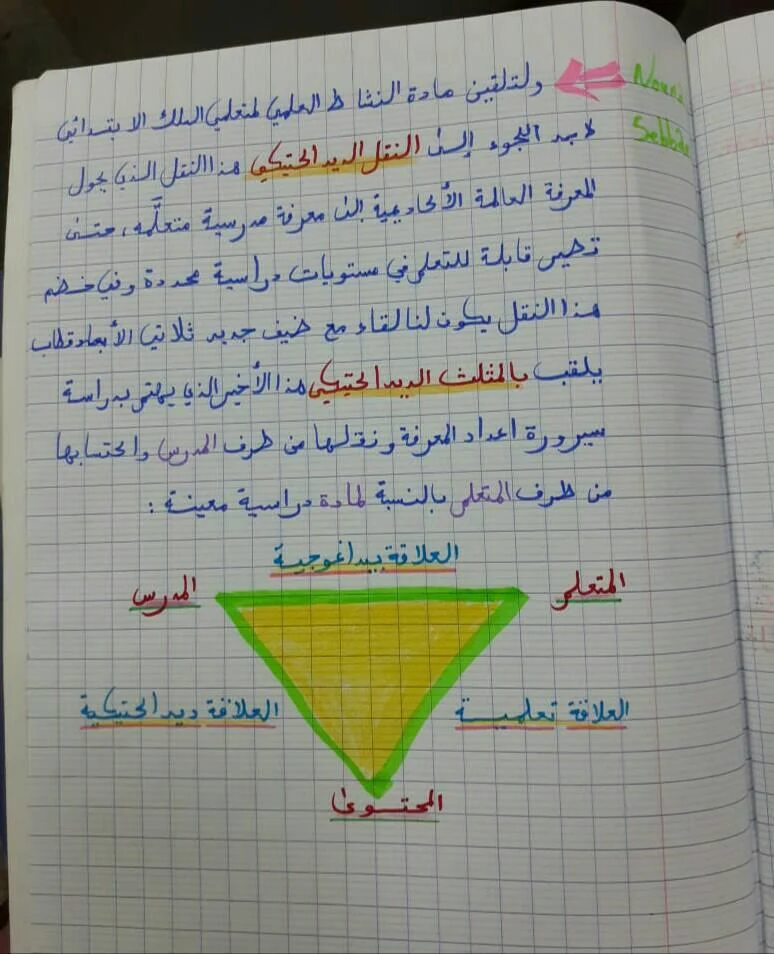 ولتلقين مادة النشاط العلمي لمتعلمي السلك الابتدائي
لابد اللجوء إلى النقل الديداكتيكي هذا النقل الذي يحول
المعرفة العالمة الأكاديمية الى معرفة مدرسية متعلَّمه، حتى
تصير قابلة للتعلم في مستويات دراسية محددة وفي خضم
هذا النقل يكون لنا لقاء مع ضيف جديد ثلاثي الأبعاد
يلقب بالمثلث الديداكتيكي هذا الأخير الذي يهتم بدراسة
سيرورة اعداد المعرفة ونقلها من طرف المدرس واكتسابها
من طرف المتعلم بالنسبة لمادة دراسية معينة :
العلاقة بيداغوجية
المتعلم
المدرس
العلاقة تعلمية
العلاقة ديداكتيكية
المحتوى